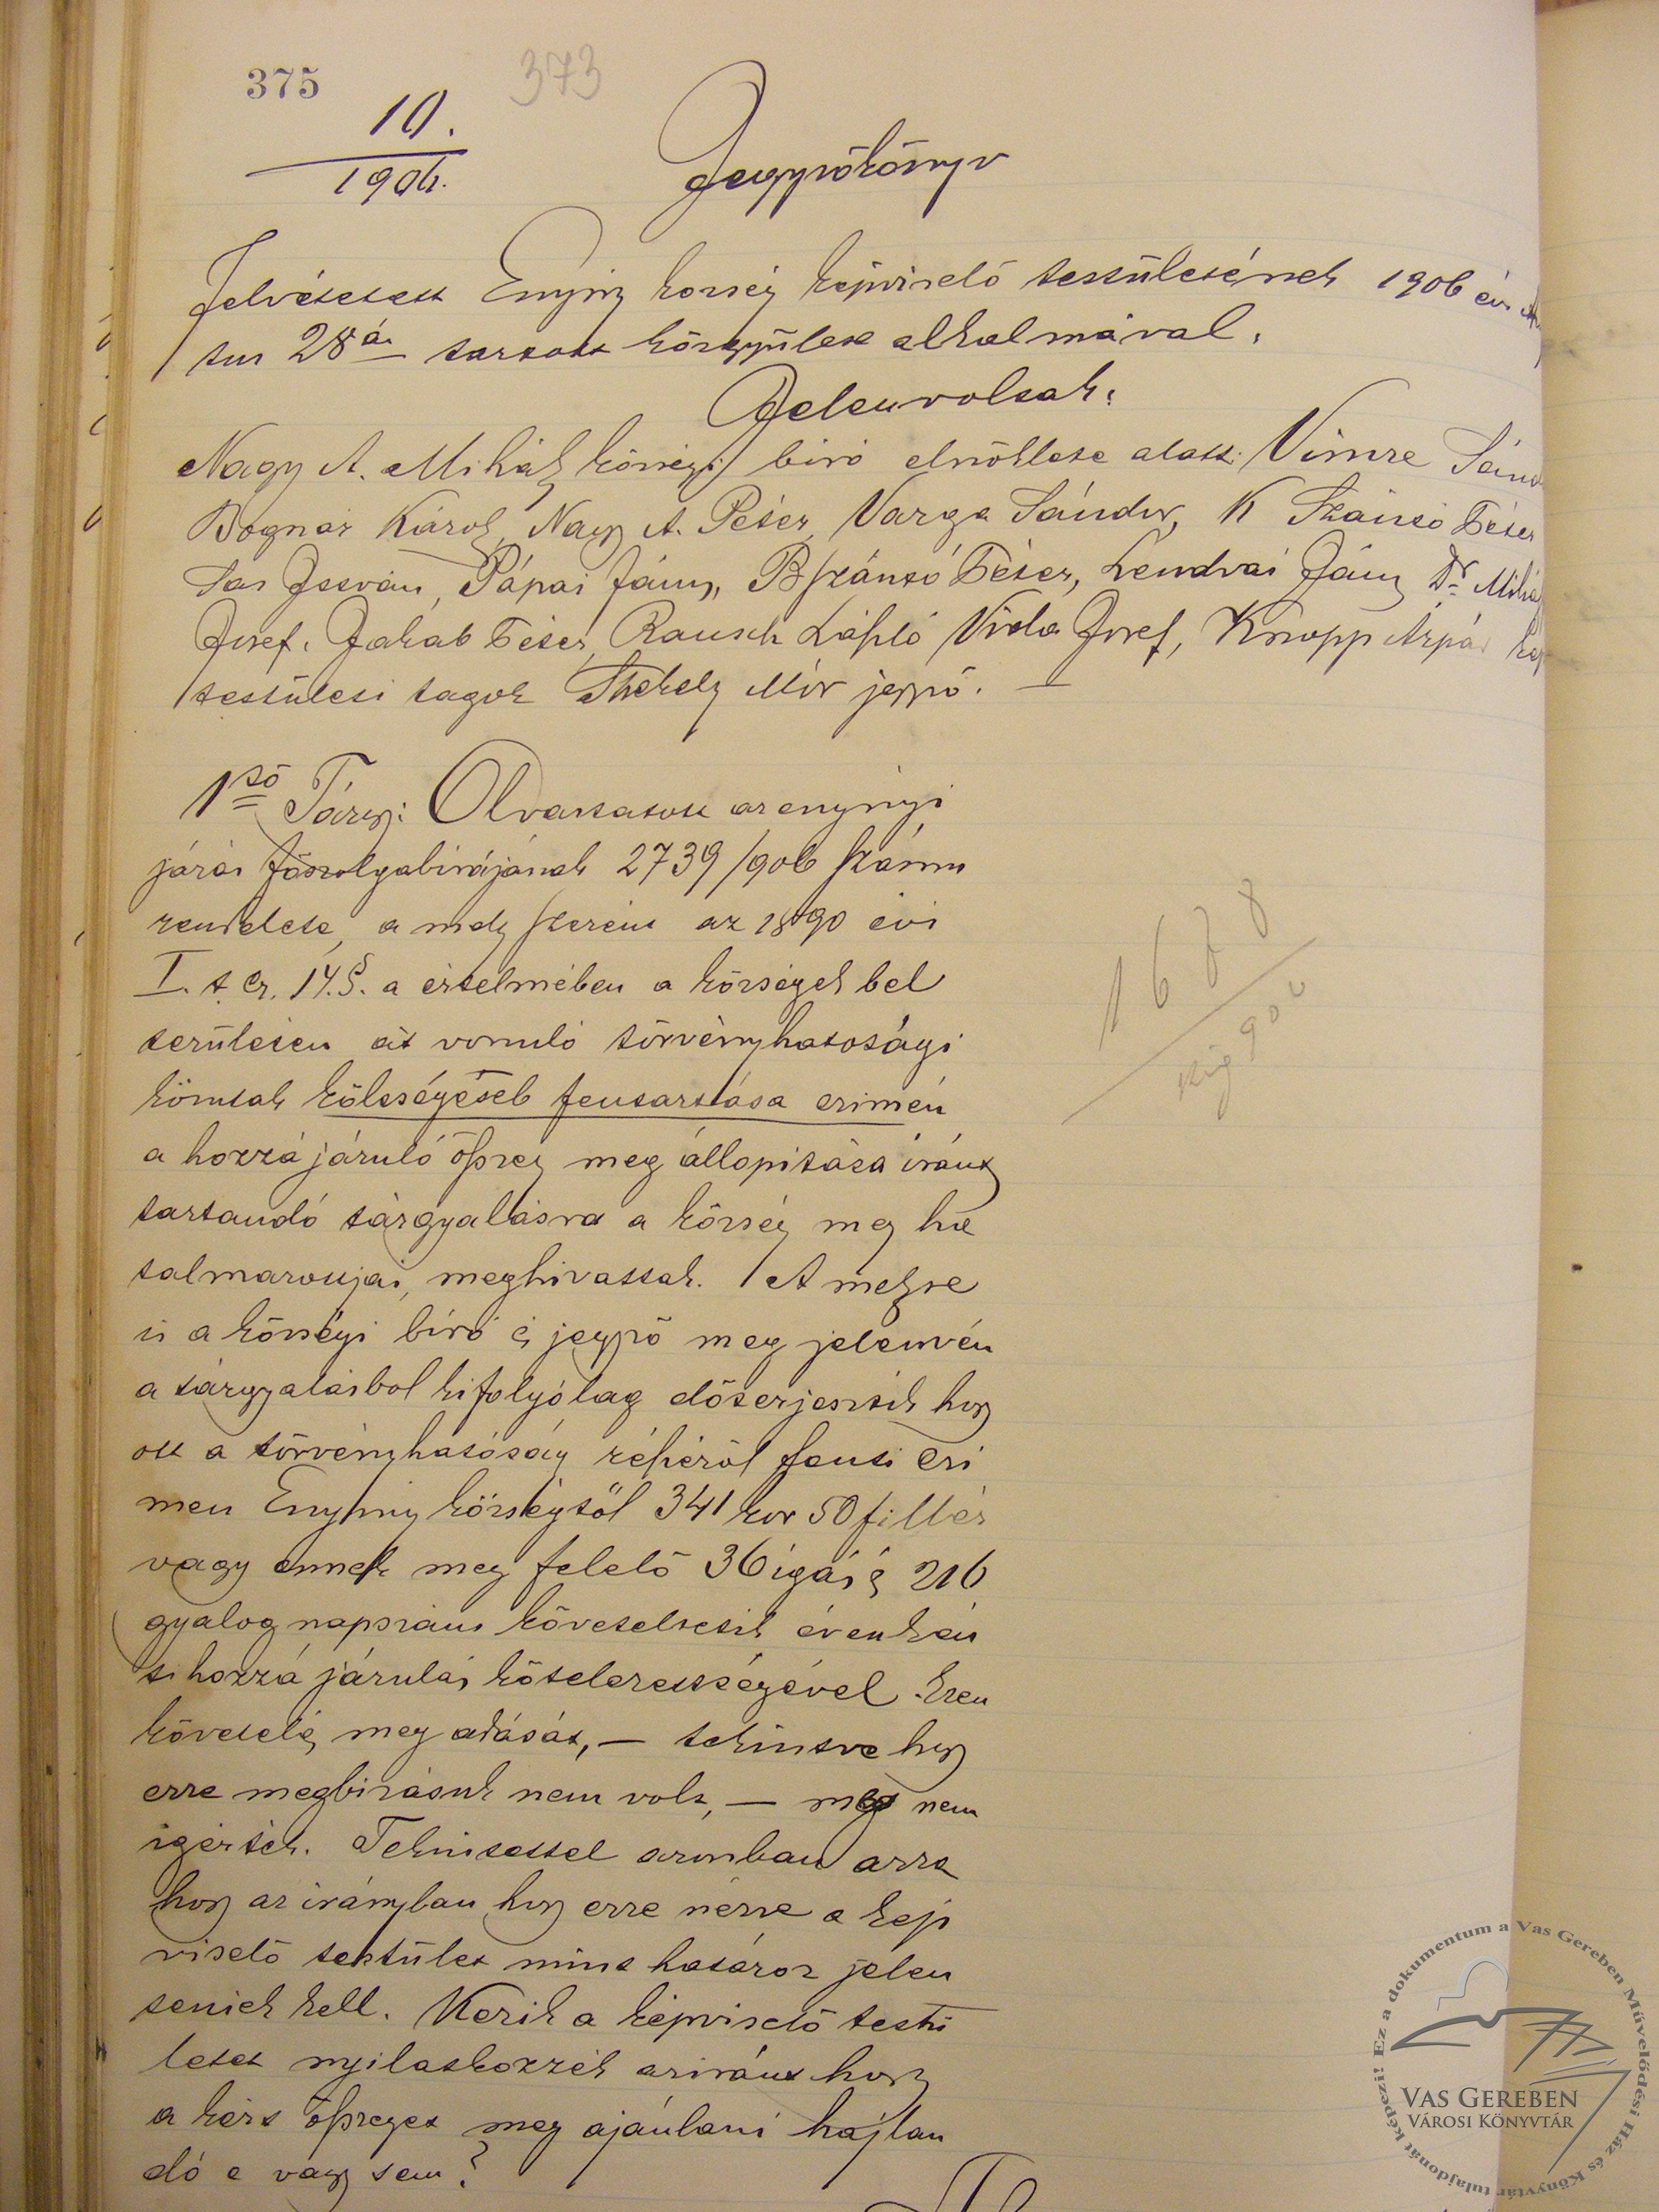 375
373
10.
1906.
Jegyzőkönyv
Felvétetett Enying község képviselő testületének 1906 évi
tus 28án tartott közgyűlése alkalmával.
Jelenvoltak:
Nagy A. Mihály községi biró elnöklete alatt: Vimre Sánd
Bognár Károly, Nagy A. Péter, Varga Sándor, K Szántó Péter
Sas István, Pápai János, B Szántó Péter, Lendvai János Dr. Mihá
Josef, Jakab Péter, Rausch László Vida Josef, Knopp Árpád kép
testületi tagok Székely Mór jegyző. —
1ső Tárgy: Olvastatott az enyingi
járás főszolgabirájának 2739/906 számu
rendelete, a mely szerint az 1890 évi
I. t cz. 14.§. a értelmében a községek bel
területén át vonuló törvényhatósági
közutak költségeseb fentartása czimén
a hozzá járuló összeg meg állopitása iránt
tartandó tárgyalásra a község meg ha
talmazottjai, meghivattak. A melyre
is a községi biró és jegyző meg jelenvén
a tárgyalásbol kifolyólag előterjesztik hogy
ott a törvényhatóság részéről fenti czi
men Enying községtől 341 kor 50 fillér
vagy ennek meg felelő 36 igás és 216
gyalog napszám követeltetik évenkén
ti hozzá járulás kötelezettségével. Ezen
követelés meg adását, — tekintve hogy
erre megbizásuk nem volt, — meg nem
igérték. Tekintettel azonban arra
hogy az irányban hogy erre nézve a kép
viselő testület mint határoz jelen
teniek kell. Kérik a képviselő testü
letet nyilatkozzék aziránt hogy
a kért összeget meg ajánlani hajlan
dó e vagy sem?
1678
kig 906
Ez a dokumentum a Vas Gereben Művelődési Ház és Könyvtár tulajdonát képezi!
VAS GEREBEN
VÁROSI KÖNYVTÁR